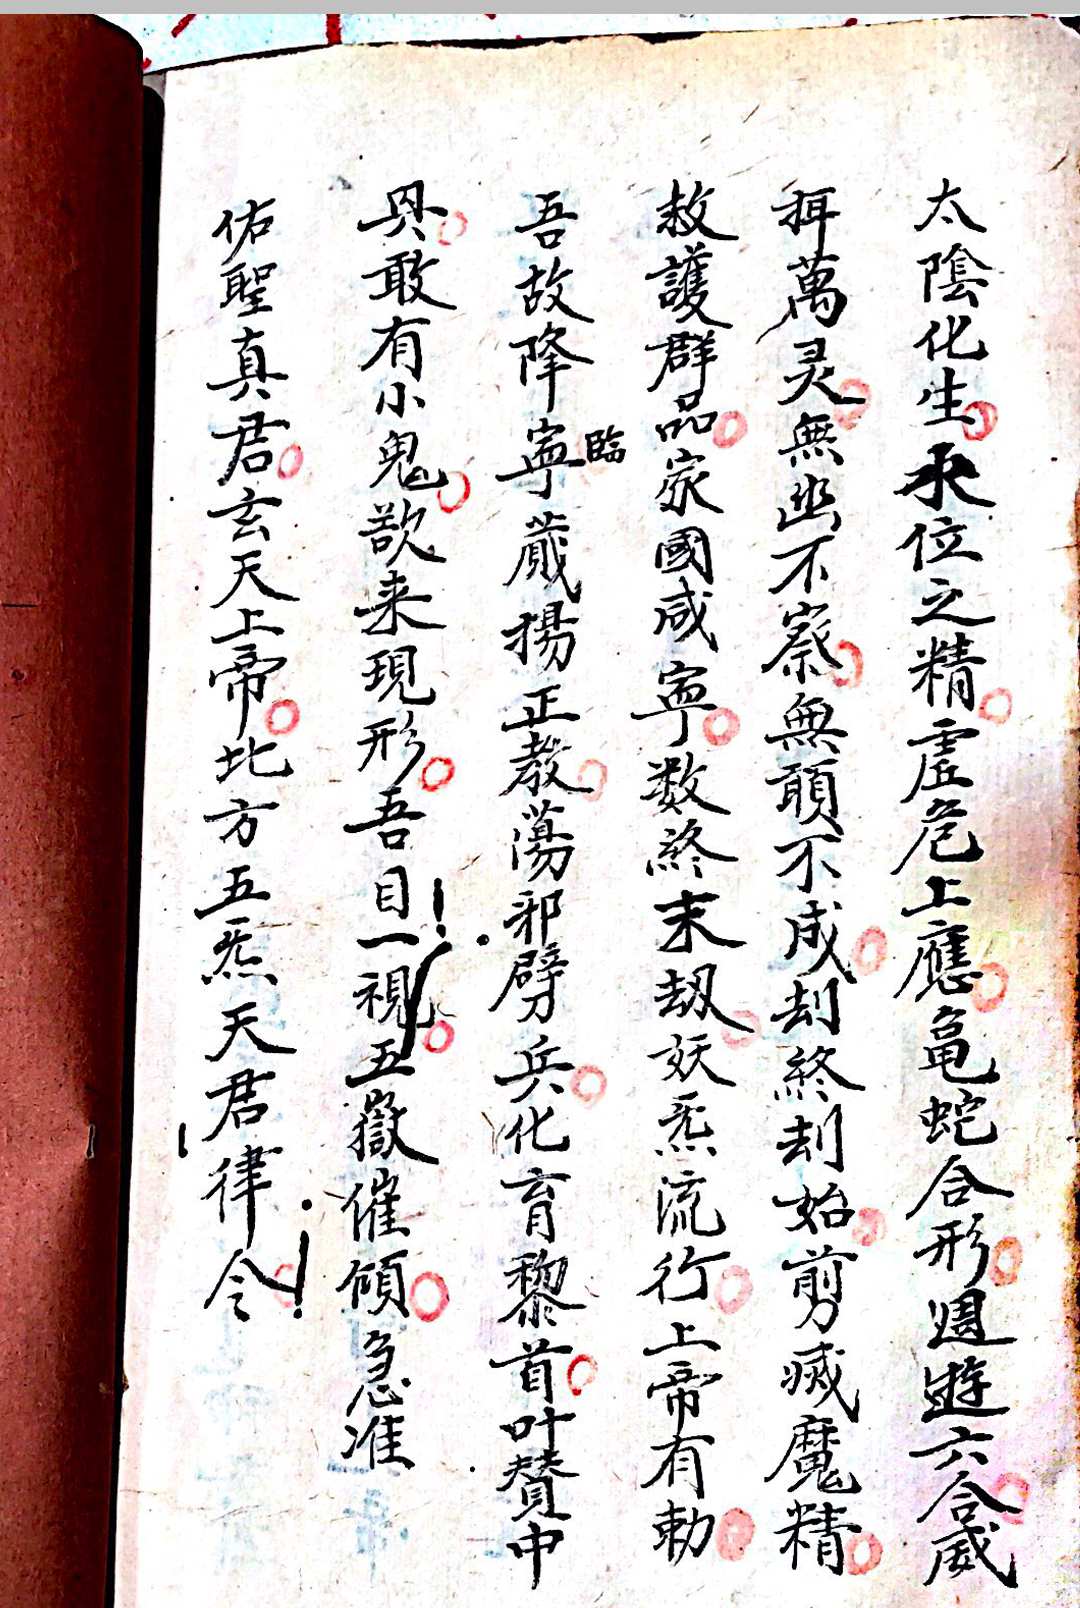 太陰化生承位之精虛危上應龟蛇合形週遊六合威
揖萬灵無幽不察無願不成刦終刦始剪滅魔精
救護群品家國咸寧数終末劫妖炁流行上帝有勅
吾故降寧臨蕆揚正教蕩邪劈兵化育黎首叶賛中
具敢有小鬼欲来現形吾目一視五嶽催傾急准
佑聖真君玄天上帝北方五炁天君律令